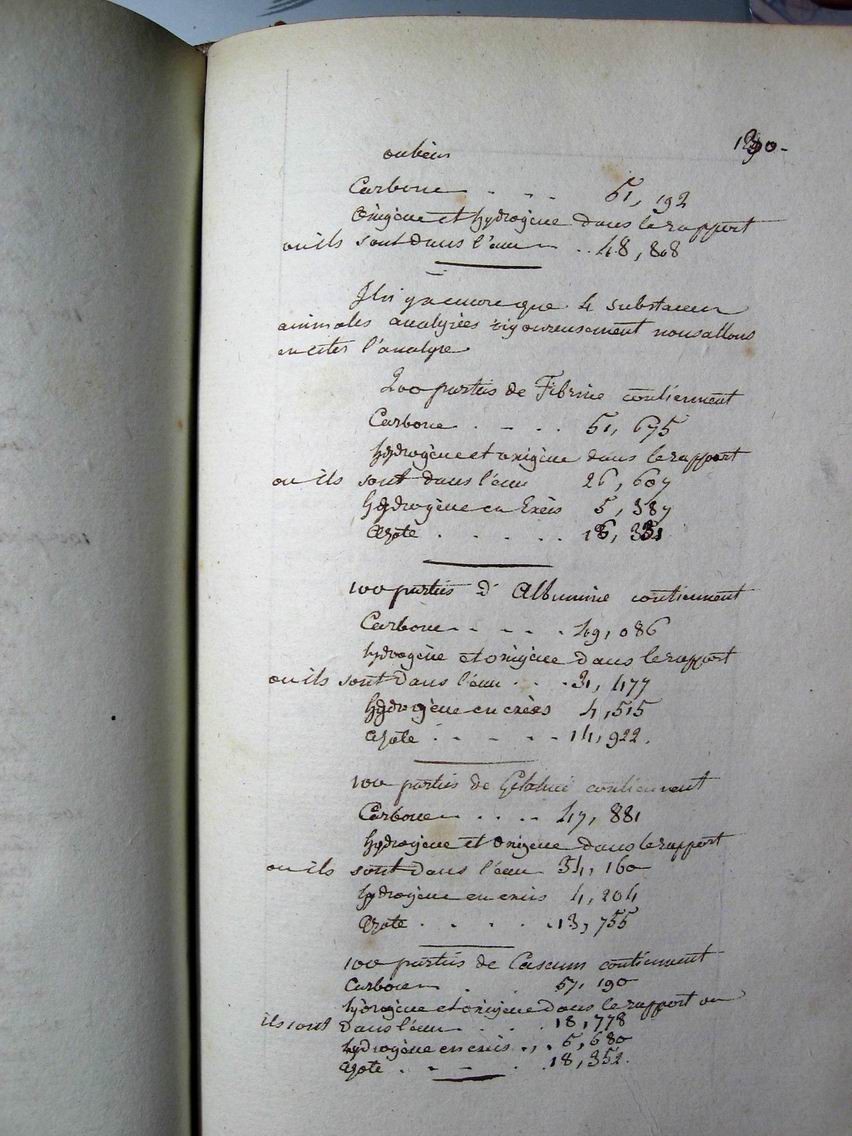 190-
oubien
Carbone - - - 51, 192
Oxigène et hydrogène dans le rapport
ou ils sont dans l'eau - .. 48, 808
Il n'y a encore que 4 substances
animales analysées rigoureusement nous allons
en citer l'analyse
100 parties de Fibrine contiennent
Carbone . - . . 51, 675
hydrogène et oxigène dans le rapport
ou ils sont dans l'eau 26, 607
hydrogène en Excès 5, 387
Azote . . . . . 16, 331
100 parties d'Albumine contiennent
Carbone - - - - . 49, 086
hydrogène et oxigène dans le rapport
ou ils sont dans l'eau . . . 31, 477
hydrogène en excès 4, 515
Azote . - - - - 14, 922.
100 parties de Gélatine contiennent
Carbone - . . . . 47, 881
hydrogène et Oxigène dans le rapport
ou ils sont dans l'eau 34, 160
hydrogène en excès 4, 204
Azote . . . . . 13, 755
100 parties de Caseum contiennent
Carbone . . . 57, 190
hydrogène et oxigène dans le rapport ou
ils sont dans l'eau . . . 18, 778
hydrogène en excès . , . 5, 680
Azote . - - . . 18, 352.